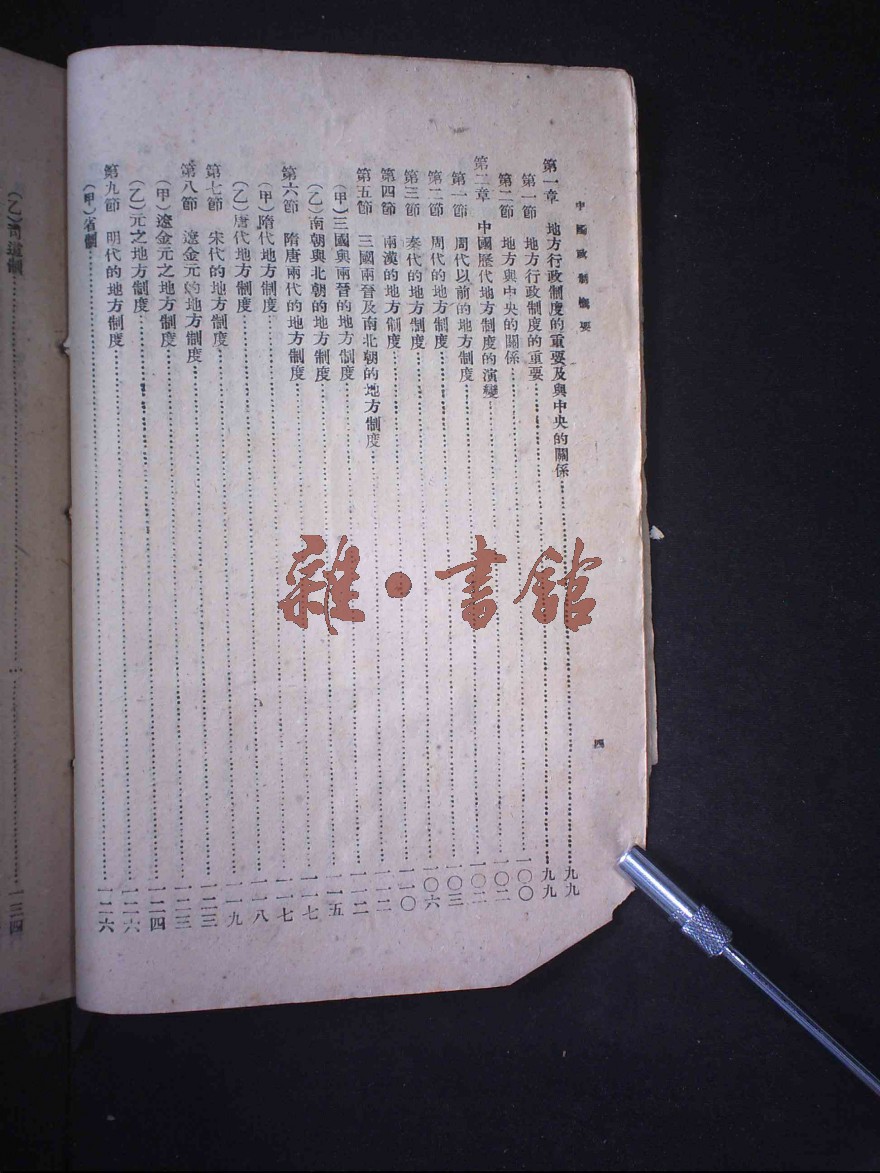 中國政制概要
四
第一章 地方行政制度的重要及與中央的關係……九九
第一節 地方行政制度的重要……九九
第二節 地方與中央的關係……一〇〇
第二章 中國歷代地方制度的演變……一〇二
第一節 周代以前的地方制度……一〇二
第二節 周代的地方制度……一〇三
第三節 秦代的地方制度……一〇六
第四節 兩漢的地方制度……一一〇
第五節 三國兩晉及南北朝的地方制度……一一二
(甲)三國與兩晉的地方制度……一一二
(乙)南朝與北朝的地方制度……一一五
第六節 隋唐兩代的地方制度……一一七
(甲)隋代地方制度……一一七
(乙)唐代地方制度……一一八
第七節 宋代的地方制度……一一九
第八節 遼金元的地方制度……一二三
(甲)遼金元之地方制度……一二三
(乙)元之地方制度……一二四
第九節 明代的地方制度……一二六
(甲)省制……一二六
(乙)司道制……一三四
雜·書館